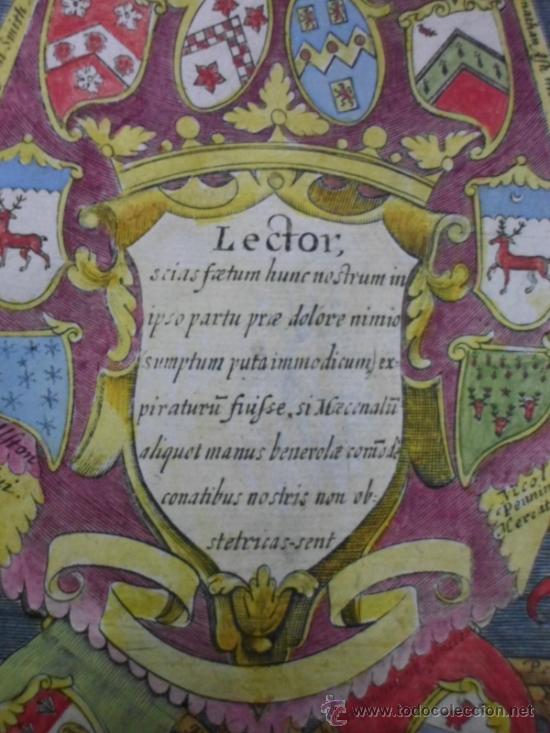 Smith
Lector,
scias fætum hunc nostrum in
ipso partu præ dolore nimio
(sumptum puta immodicum) ex-
piraturū fuisse, si Mæcenatū
aliquot manus benevolæ comōde
conatibus nostris non ob-
stetricas-sent
Nicol
Pennin
Mercat
www.todocoleccion.net